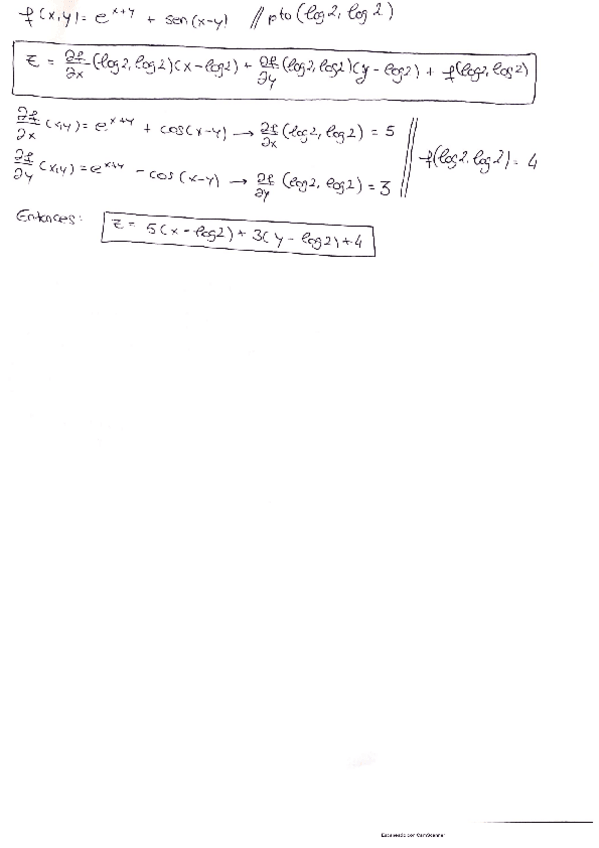 f(x,y) = e^{x+y} + sen(x-y) // pto (log2, log2)
z = ∂f/∂x (log2, log2)(x-log2) + ∂f/∂y (log2, log2)(y-log2) + f(log2, log2)
∂f/∂x (x,y) = e^{x+y} + cos(x-y) → ∂f/∂x (log2, log2) = 5
∂f/∂y (x,y) = e^{x+y} - cos(x-y) → ∂f/∂y (log2, log2) = 3 // f(log2, log2) = 4
Entonces: z = 5(x-log2) + 3(y-log2) + 4
Escaneado con CamScanner